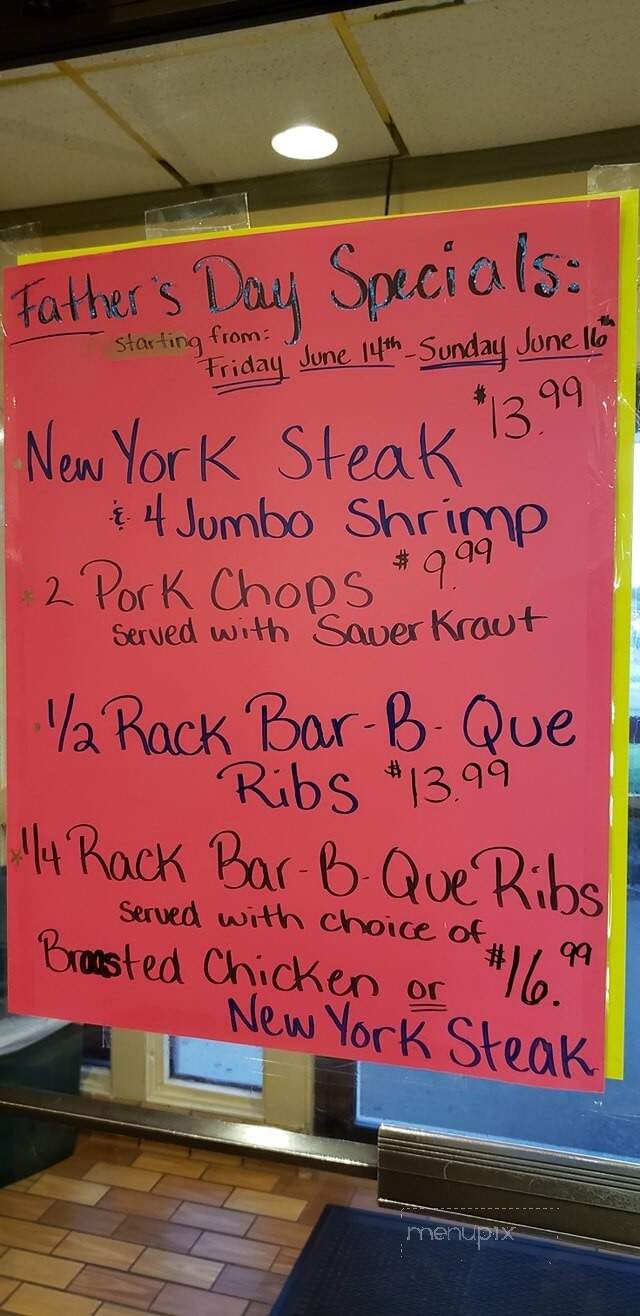 Father's Day Specials:
starting from:
Friday June 14th - Sunday June 16th
New York Steak $13.99
& 4 Jumbo Shrimp
* 2 Pork Chops $9.99
Served with Sauer Kraut
1/2 Rack Bar-B-Que
Ribs $13.99
* 1/4 Rack Bar-B-Que Ribs
Served with choice of
Broasted Chicken or $16.99
New York Steak
menupix